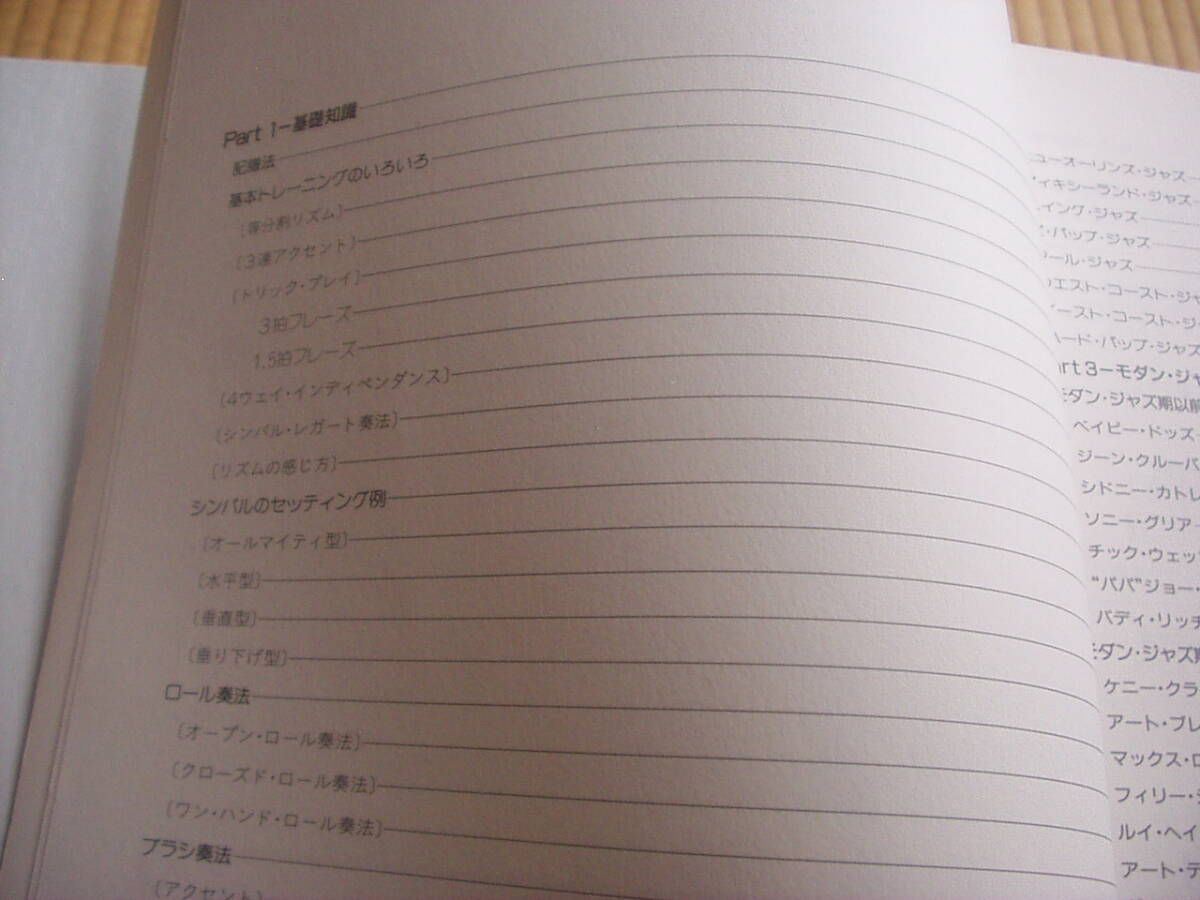 Part 1-基礎知識
記譜法
基本トレーニングのいろいろ
〔等分割リズム〕
〔3連アクセント〕
〔トリック・プレイ〕
3拍フレーズ
1.5拍フレーズ
〔4ウェイ・インディペンダンス〕
〔シンバル・レガート奏法〕
〔リズムの感じ方〕
シンバルのセッティング例
〔オールマイティ型〕
〔水平型〕
〔垂直型〕
〔垂り下げ型〕
ロール奏法
〔オープン・ロール奏法〕
〔クローズド・ロール奏法〕
〔ワン・ハンド・ロール奏法〕
ブラシ奏法
〔アクセント〕
ューオーリンズ・ジャズ
ィキシーランド・ジャズ
イング・ジャズ
・バップ・ジャズ
ール・ジャズ
エスト・コースト・ジャ
ースト・コースト・ジ
ード・バップ・ジャズ
art 3-モダン・ジャ
ダン・ジャズ期以前
ベイビー・ドッズ
ジーン・クルーパ
シドニー・カトレ
ソニー・グリア
チック・ウェッ
“パパ”ジョー・
バディ・リッチ
ダン・ジャズ期
ケニー・クラ
アート・ブレ
マックス・ロ
フィリー・ジ
ルイ・ヘイ
アート・テ